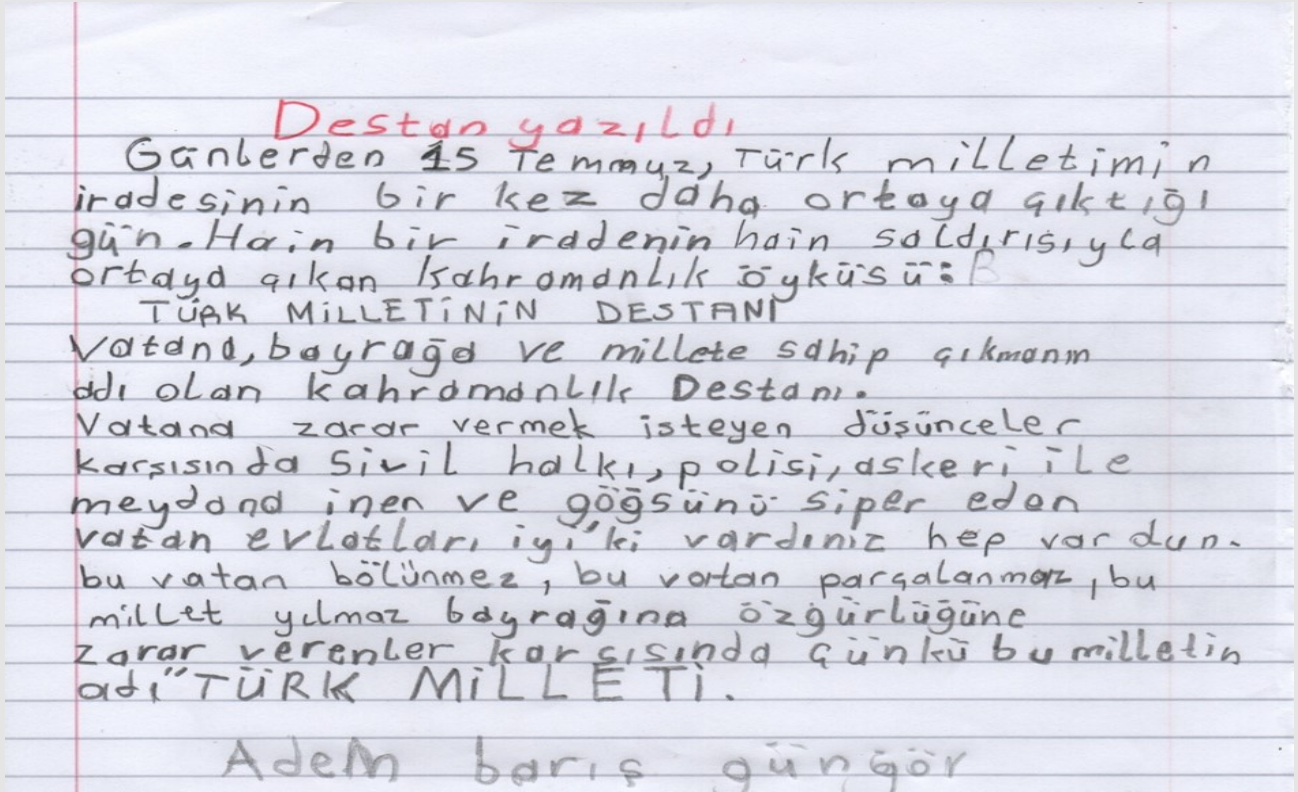 Destan yazıldı
Günlerden 15 Temmuz, Türk milletimin
iradesinin bir kez daha ortaya çıktığı
gün. Hain bir iradenin hain saldırısıyla
ortaya çıkan kahramanlık öyküsü: B
TÜRK MİLLETİNİN DESTANI
Vatana, bayrağa ve millete sahip çıkmanın
adı olan kahramanlık Destanı.
Vatana zarar vermek isteyen düşünceler
karşısında Sivil halkı, polisi, askeri ile
meydana inen ve göğsünü siper eden
vatan evlatları iyi'ki vardınız hep var olun.
bu vatan bölünmez, bu vatan parçalanmaz, bu
millet yılmaz bayrağına özgürlüğüne
zarar verenler karşısında çünkü bu milletin
adı "TÜRK MİLLETİ.
Adem barış güngör